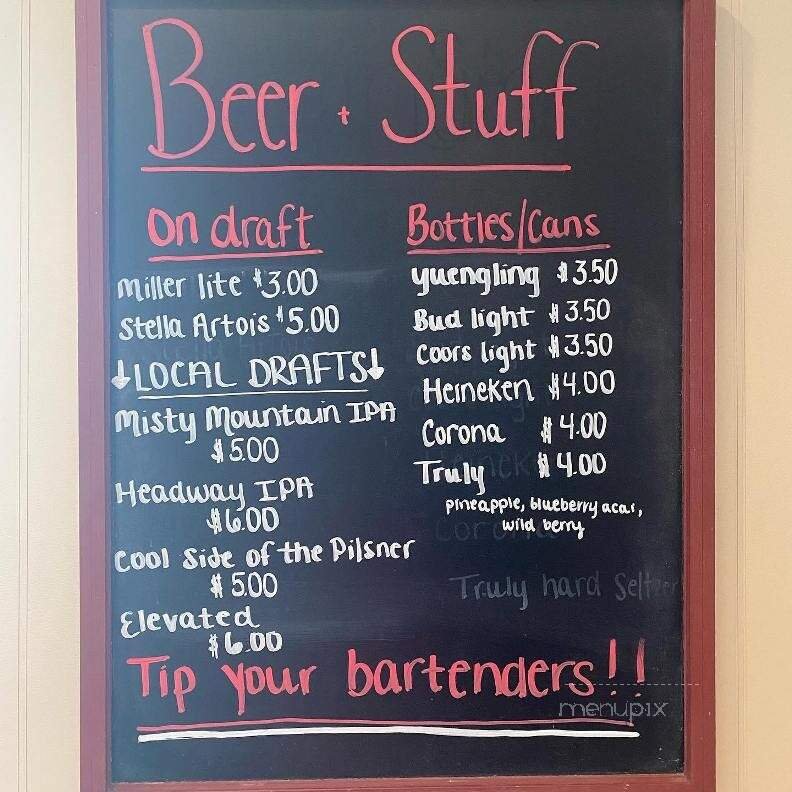 Beer + Stuff
On draft
Miller lite $3.00
Stella Artois $5.00
↓LOCAL DRAFTS↓
Misty Mountain IPA
$5.00
Headway IPA
$6.00
Cool Side of the Pilsner
$5.00
Elevated
$6.00
Bottles/Cans
Yuengling $3.50
Bud light $3.50
Coors light $3.50
Heineken $4.00
Corona $4.00
Truly $4.00
pineapple, blueberry acai,
wild berry
Truly hard Seltzer
Tip your bartenders!!
menupix